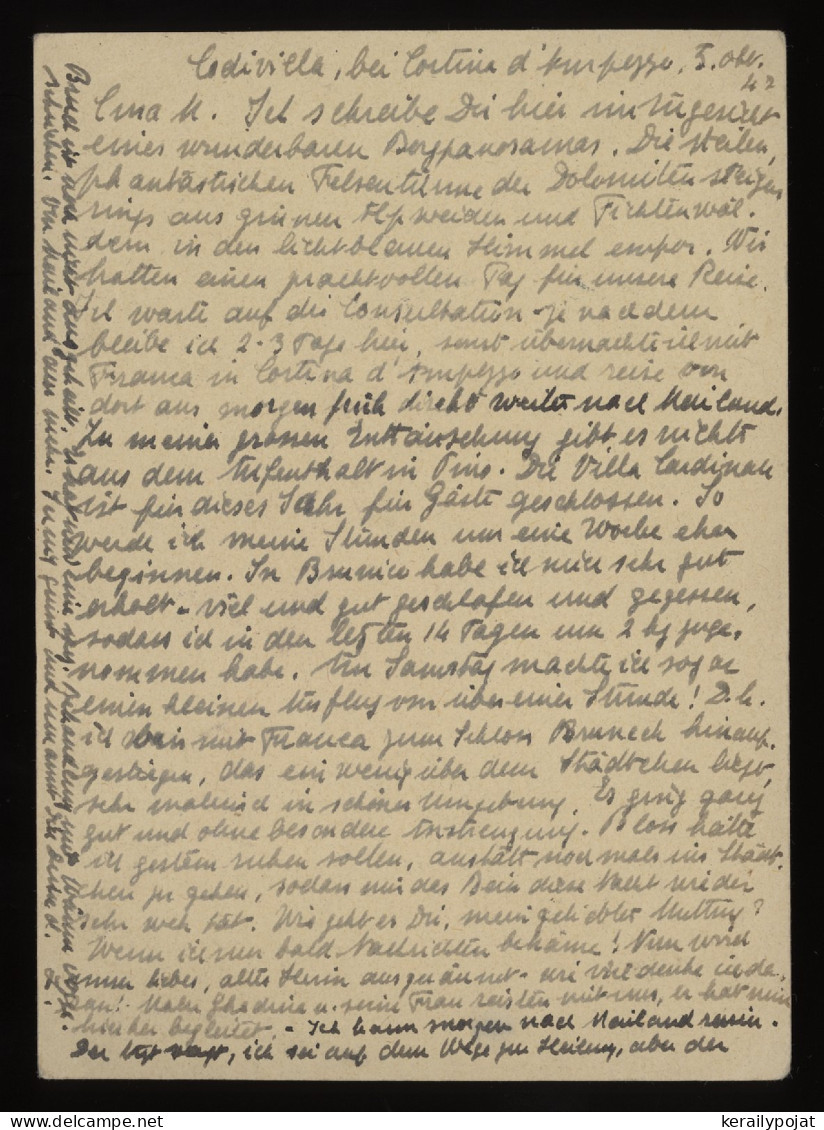 Codivilla, bei Cortina d'Ampezzo, 5. Okt.
42
Cara M. Ich schreibe Dir hier im Angesicht
eines wunderbaren Bergpanoramas. Die steilen,
phantastischen Felsentürme der Dolomiten steigen
rings aus grünen Alpweiden und Fichtenwäl-
dern in den lichtblauen Himmel empor. Wir
hatten einen prachtvollen Tag für unsere Reise.
Ich warte auf die Consultation - je nachdem
bleibe ich 2-3 Tage hier, sonst übernachte ich mit
Franca in Cortina d'Ampezzo und reise von
dort aus morgen früh direkt weiter nach Mailand.
Zu meiner grossen Enttäuschung gibt es nichts
aus dem Aufenthalt in Pino. Die Villa Cardinale
ist für dieses Jahr für Gäste geschlossen. So
werde ich meine Stunden um eine Woche eher
beginnen. In Brunico habe ich mich sehr gut
erholt - viel und gut geschlafen und gegessen,
sodass ich in den letzten 14 Tagen um 2 kg zuge-
nommen habe. Am Samstag machte ich sogar
einen kleinen Ausflug von über einer Stunde! D.h.
ich bin mit Franca zum Schloss Bruneck hinauf-
gestiegen, das ein wenig über dem Städtchen liegt,
sehr malerisch in schöner Umgebung. Es ging ganz
gut und ohne besondere Anstrengung. Bloss hätte
ich gestern ruhen sollen, anstatt nochmals ins Städt-
chen zu gehen, sodass mir das Bein diese Nacht wieder
sehr weh tat. Wie geht es Dir, mein geliebtes Mutting?
Wenn ich nur bald Nachrichten bekäme! Nun wird
unser liebes, altes Heim ausgeräumt - wie viel denke ich da-
ran! Maler und seine Frau reisten mit uns, er hat mich
hierher begleitet. - Ich kann morgen nach Mailand reisen.
Der Arzt sagt, ich sei auf dem Wege zur Heilung, aber der
Bruch ist noch nicht ausgeheilt.
schreiben. Von Mailand aus mehr. Innig grüsst und umarmt Dich Deine
kerailypojat
www.delcampe.net